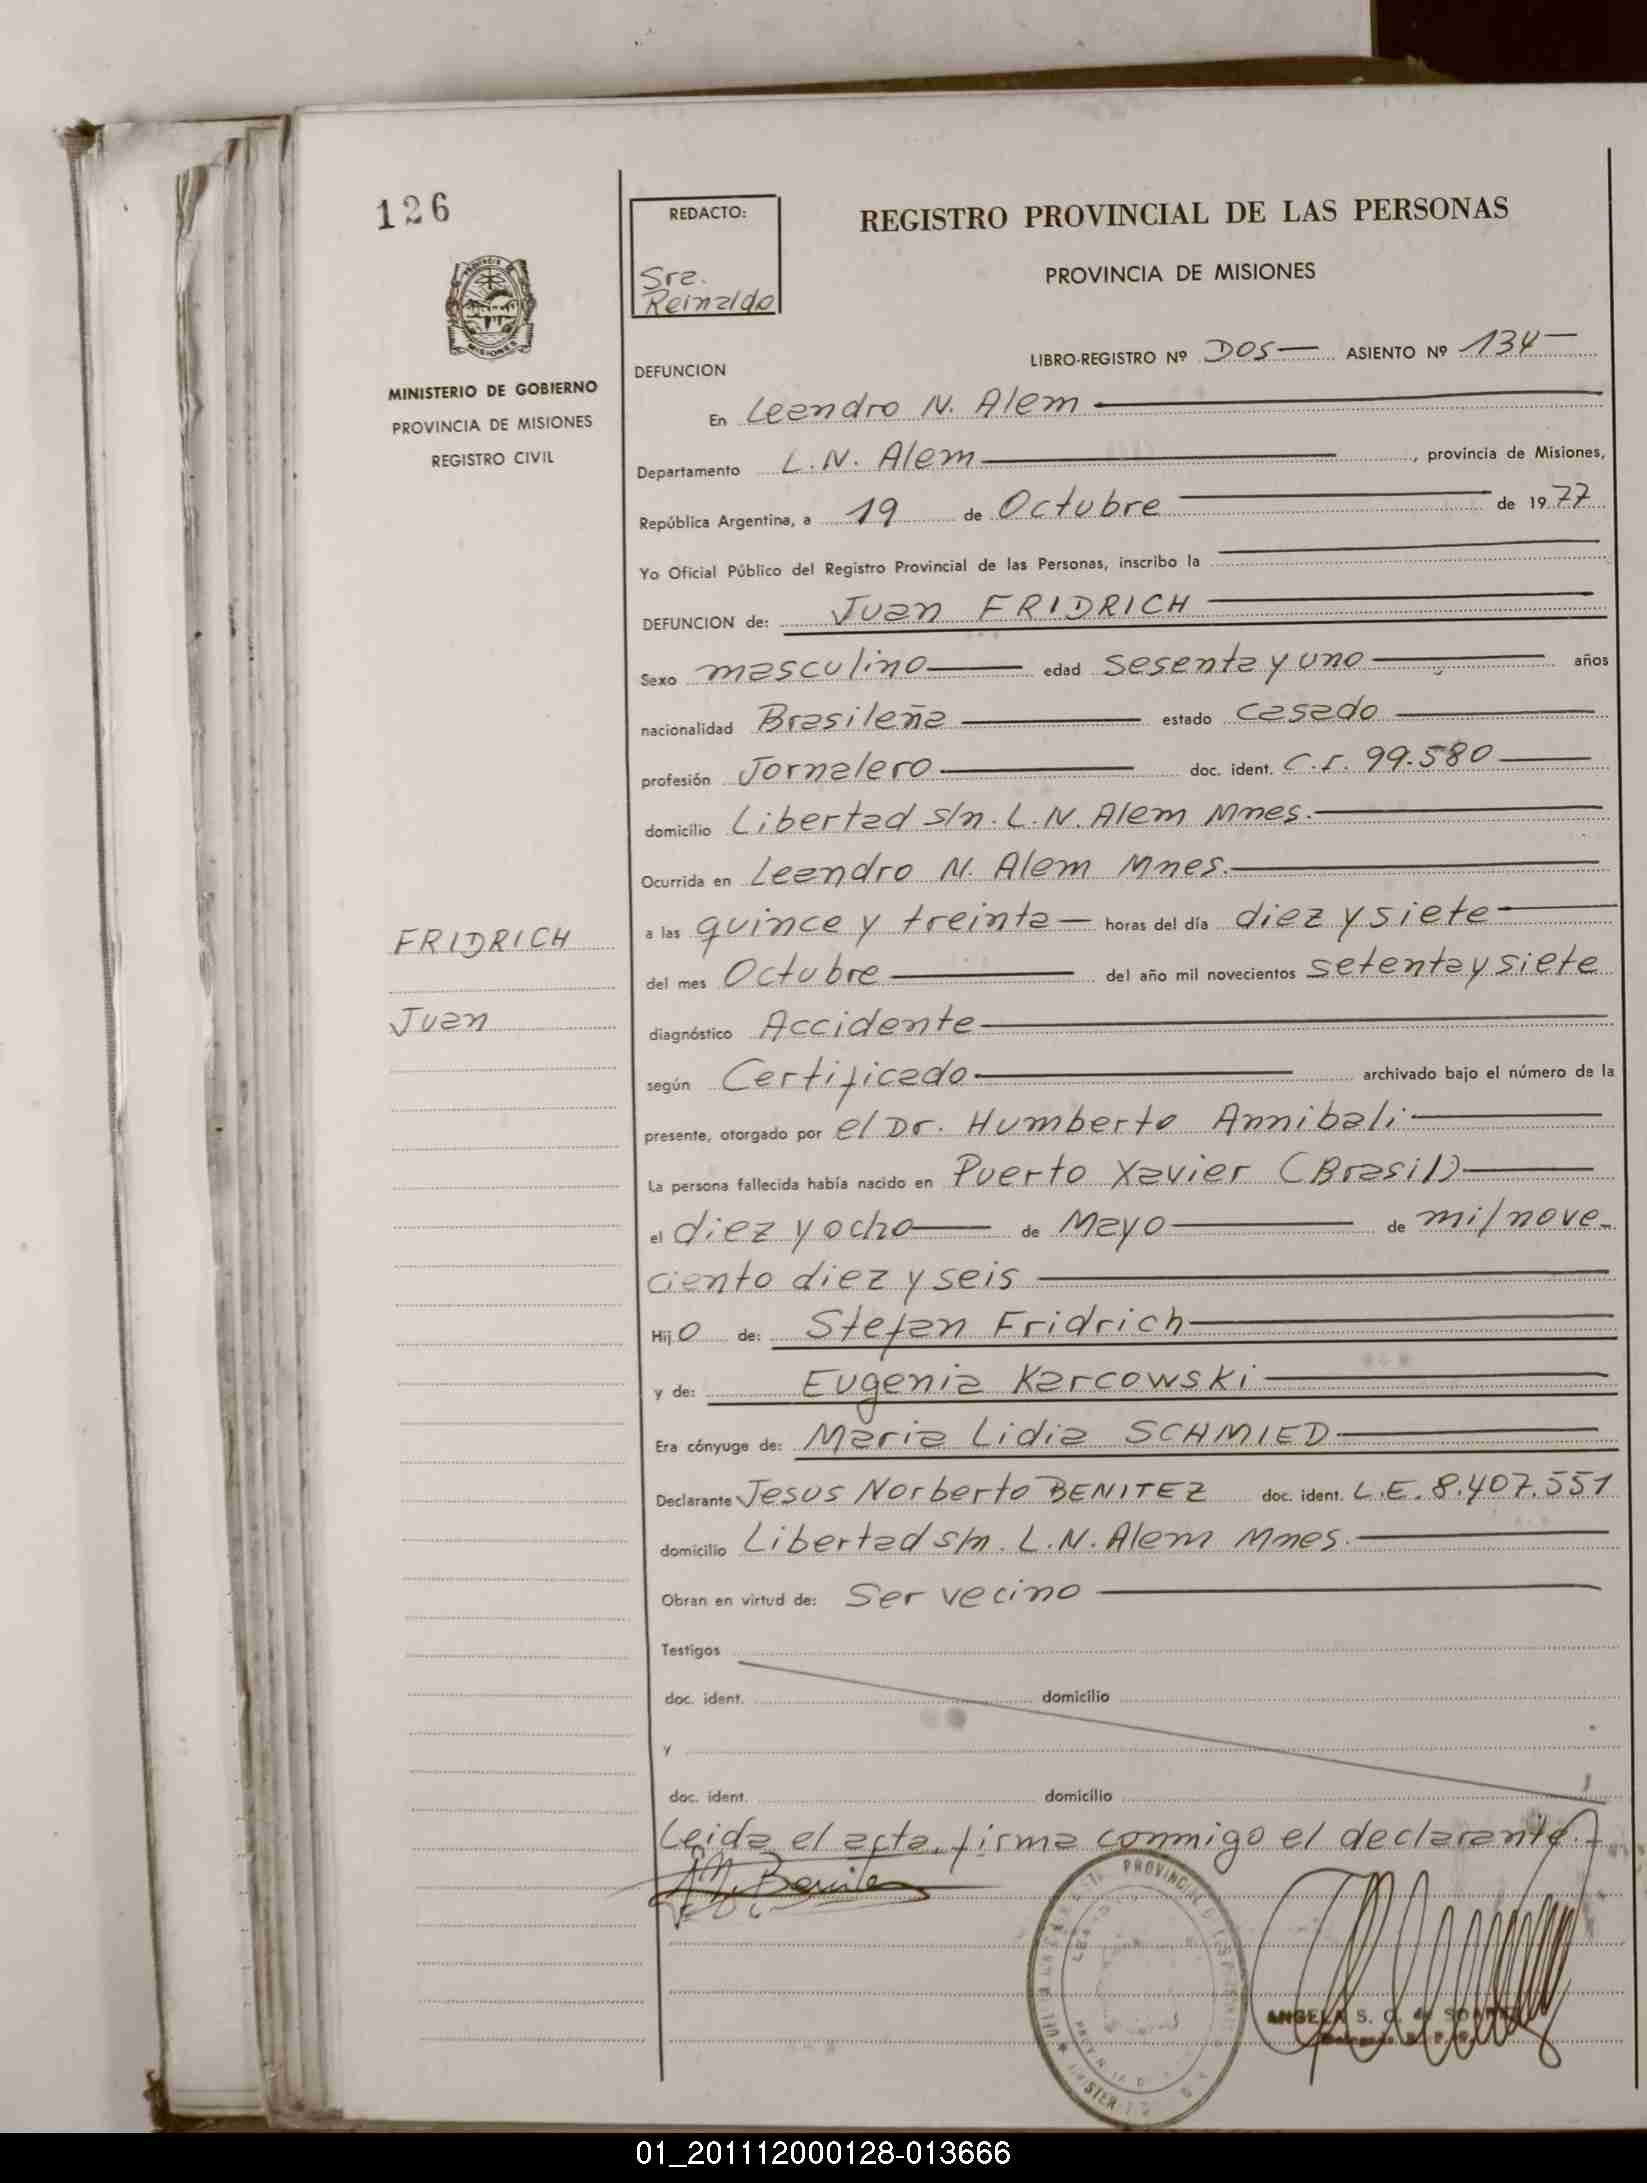 126
REDACTO:
Sra.
Reinaldo
REGISTRO PROVINCIAL DE LAS PERSONAS
PROVINCIA DE MISIONES
MISIONES
MINISTERIO DE GOBIERNO
PROVINCIA DE MISIONES
REGISTRO CIVIL
DEFUNCION
LIBRO-REGISTRO Nº DOS— ASIENTO Nº 134—
En Leandro N. Alem
Departamento L. N. Alem , provincia de Misiones,
República Argentina, a 19 de Octubre de 1977
Yo Oficial Público del Registro Provincial de las Personas, inscribo la
DEFUNCION de: Juan FRIDRICH
Sexo masculino edad sesenta y uno años
nacionalidad Brasileña estado casado
profesión Jornalero doc. ident. C.I. 99.580
domicilio Libertad s/n. L. N. Alem Mnes.
Ocurrida en Leandro N. Alem Mnes.
a las quince y treinta horas del día diez y siete
del mes Octubre del año mil novecientos setenta y siete
diagnóstico Accidente
según Certificado archivado bajo el número de la
presente, otorgado por el Dr. Humberto Annibali
La persona fallecida había nacido en Puerto Xavier (Brasil)
el diez y ocho de Mayo de mil nove-
ciento diez y seis
Hijo de: Stefan Fridrich
y de: Eugenia Karcowski
Era cónyuge de: Maria Lidia SCHMIED
Declarante Jesus Norberto BENITEZ doc. ident. L.E. 8.407.551
domicilio Libertad s/n. L. N. Alem Mnes.
Obran en virtud de: Ser vecino
Testigos
doc. ident. domicilio
y
doc. ident. domicilio
Leida el acta, firma conmigo el declarante.-
FRIDRICH
Juan
Benitez
PROVINCIAL
ANGELA S.
01_201112000128-013666